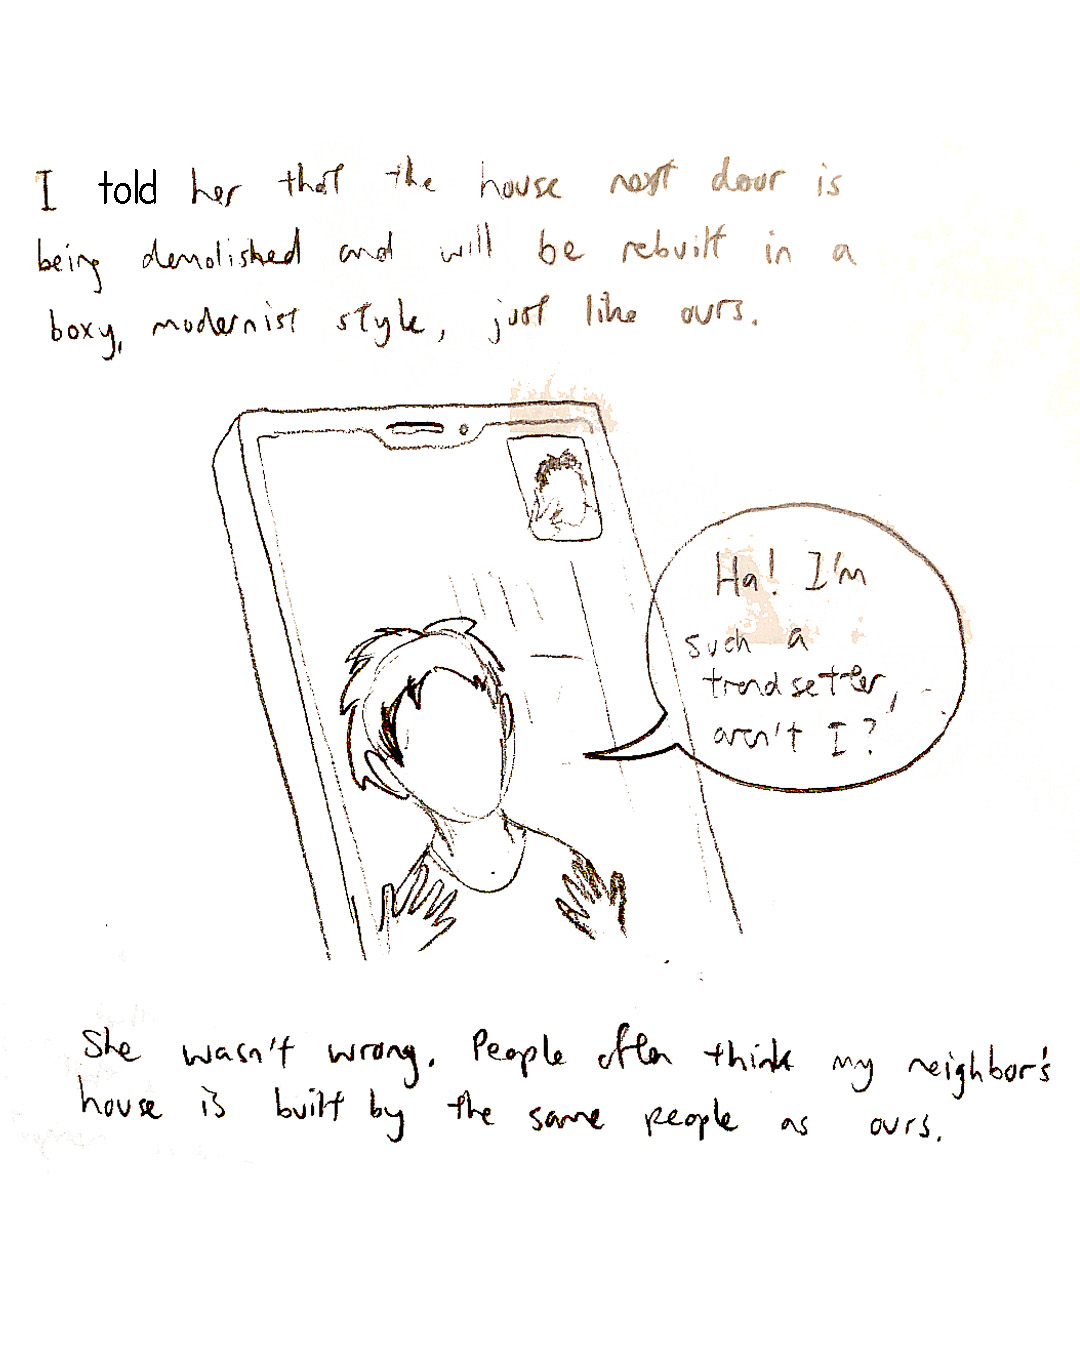 I told her that the house next door is
being demolished and will be rebuilt in a
boxy, modernist style, just like ours.
Ha! I'm
such a
trendsetter,
aren't I?
She wasn't wrong. People often think my neighbor's
house is built by the same people as ours.